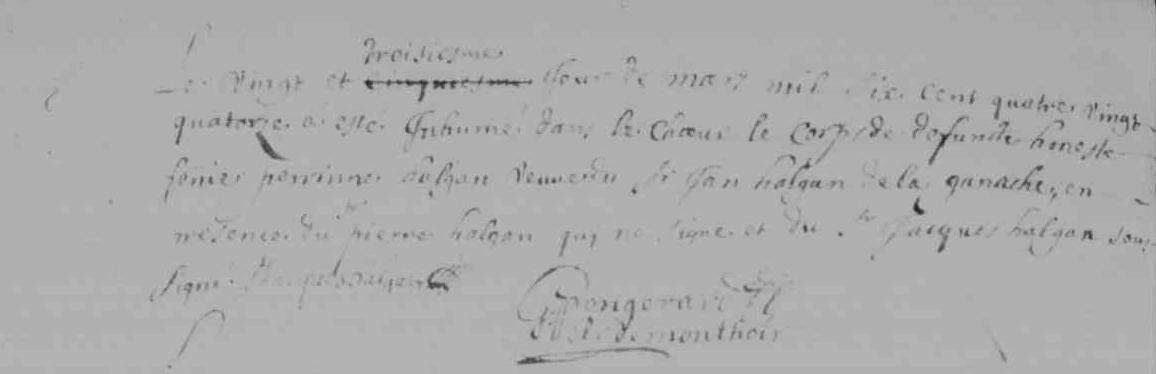 troisiesme
Le vingt et cinquiesme Jour de mars mil six cent quatre vingt
quatorze a esté Inhumé dans le Chœur le Corps de defuncte honeste
feme perrinne halgan veuve du Sr Jan halgan de la ganache, en
presence du Sr pierre halgan qui ne signe et du Sr Jacques halgan sous
signé
de monthoir